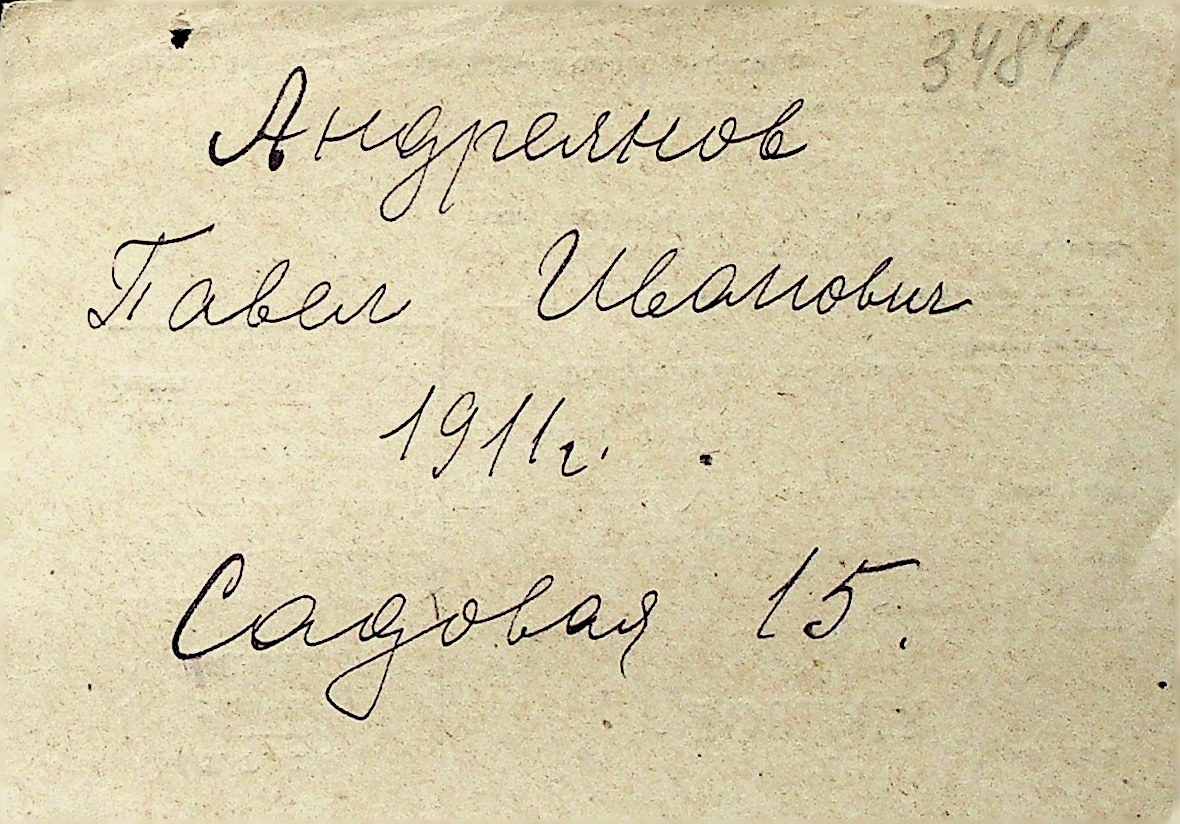 3484
Андреянов
Павел Иванович
1911г.
Садовая 15.